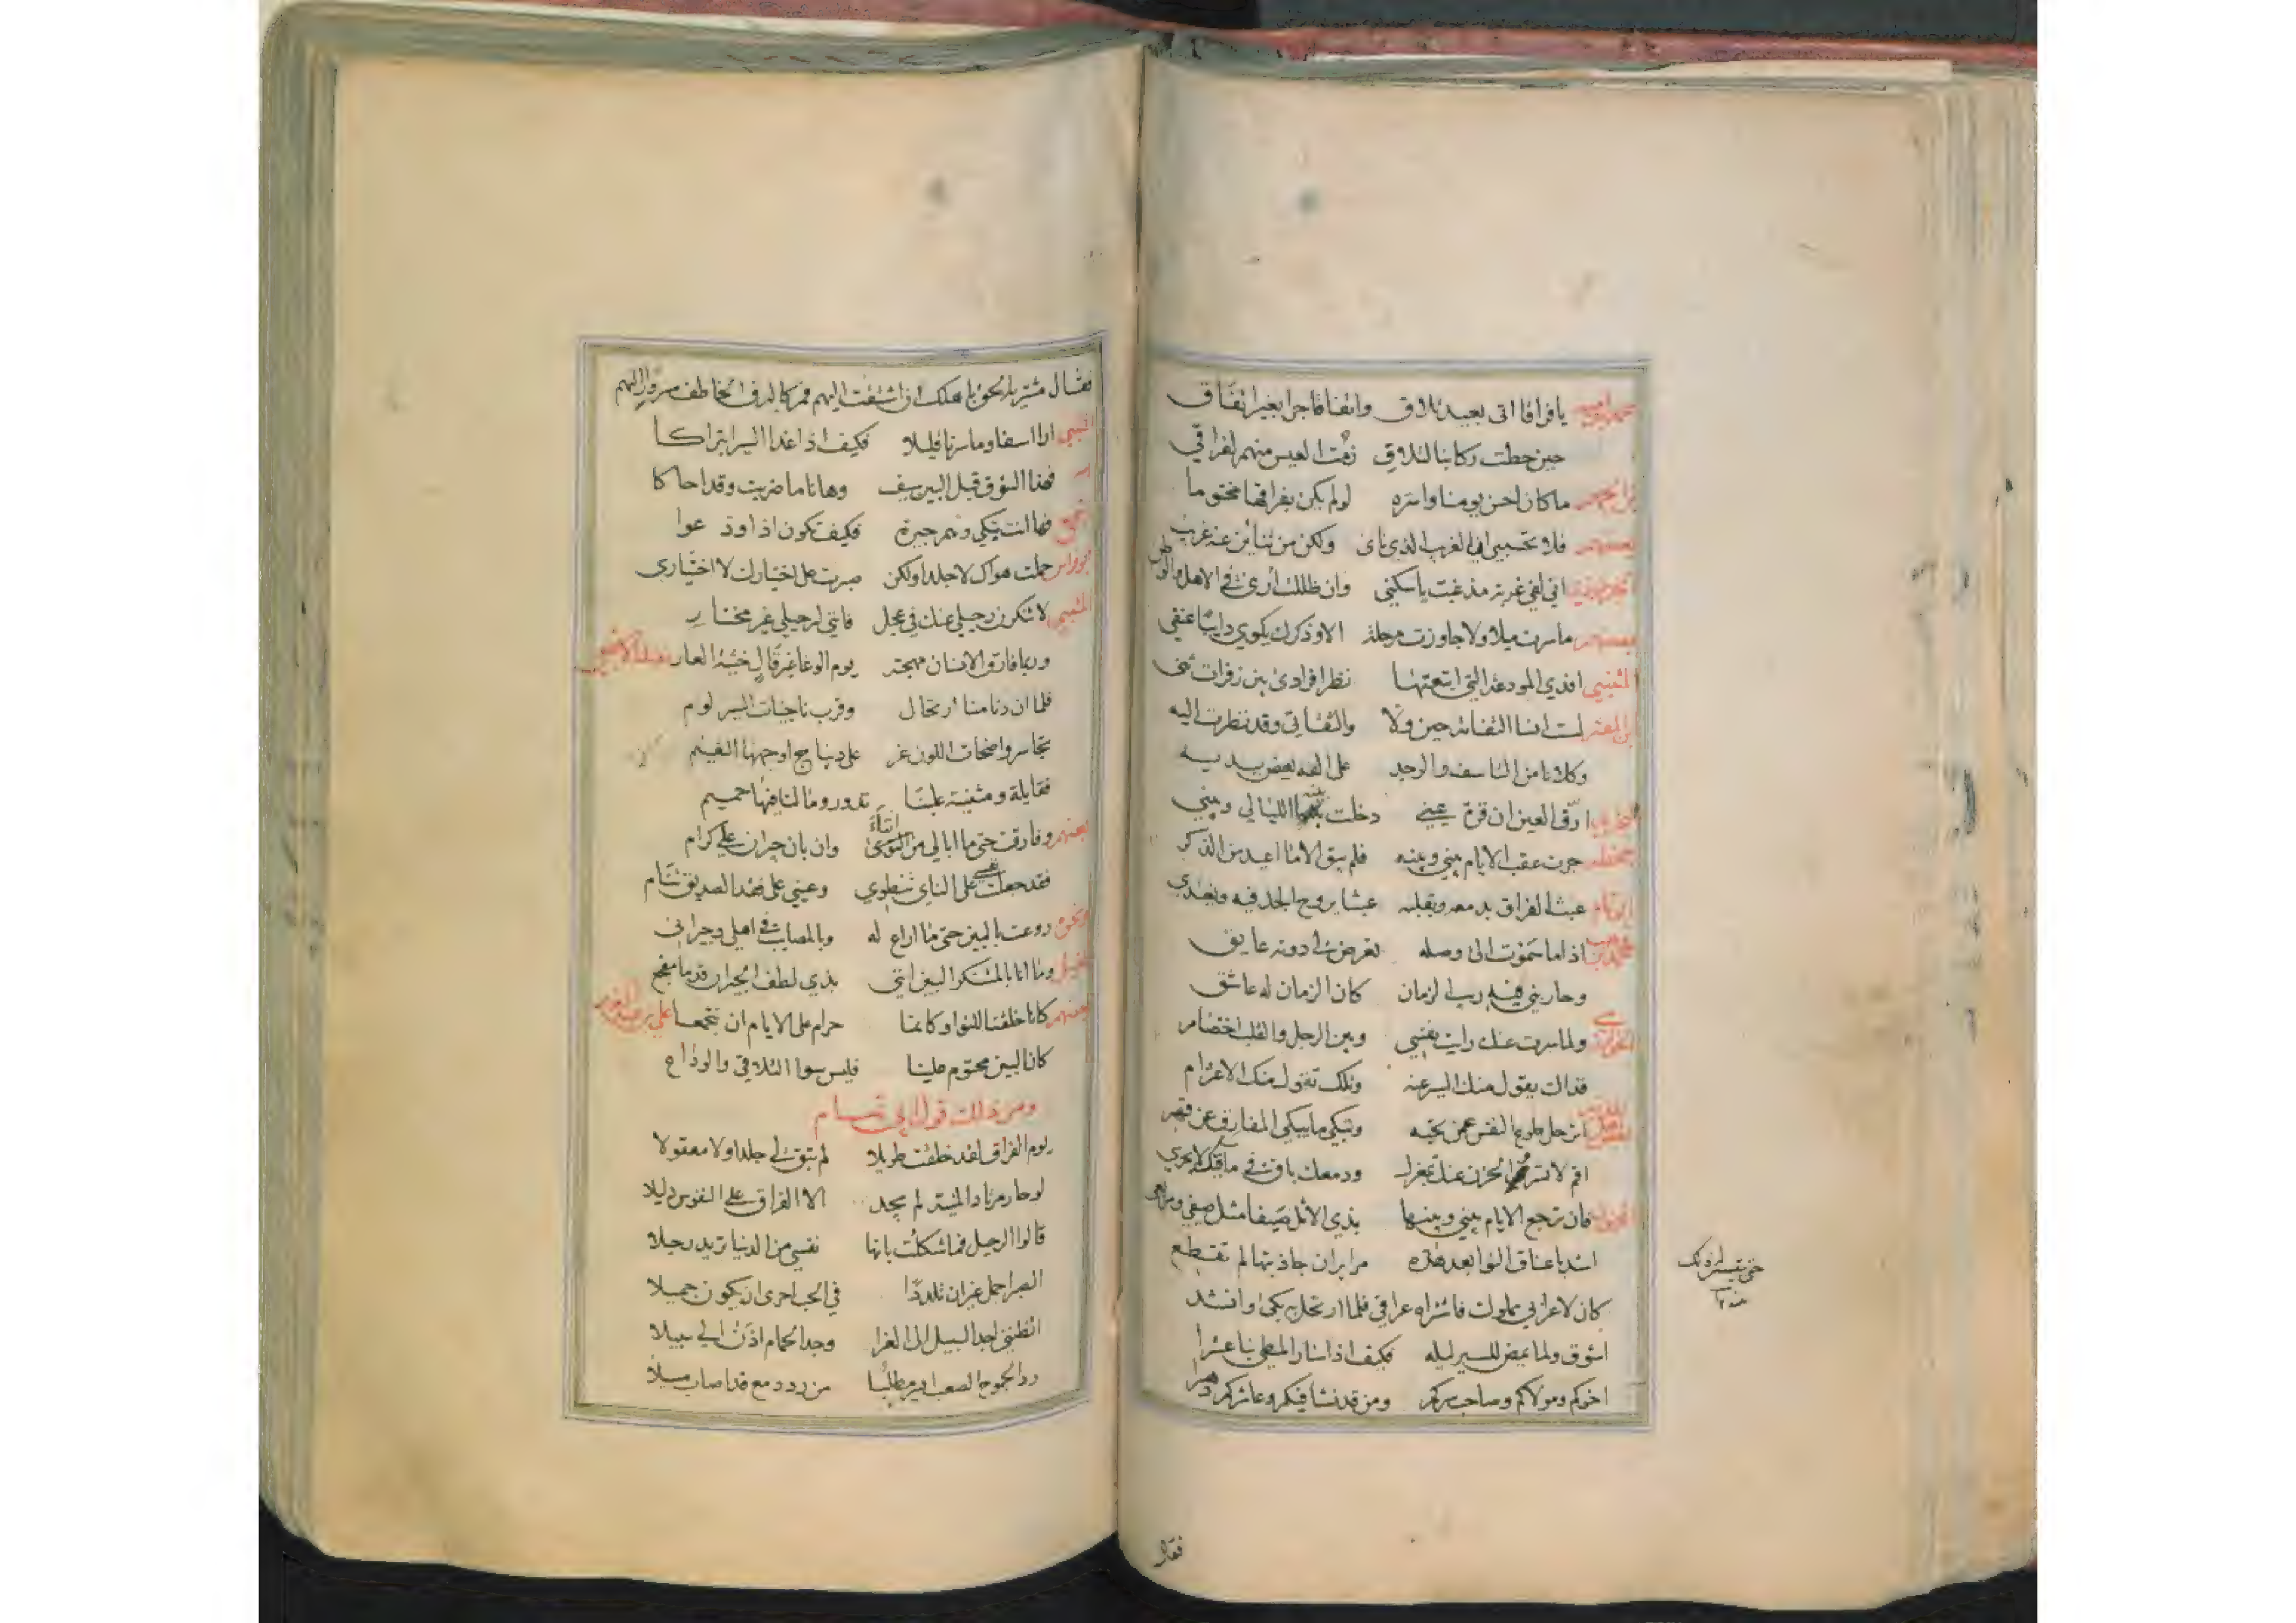 يا فراقا اتى بعيد تلاق واتفاقا جرا بغير اتفاق
حين حطت ركابنا لتلاق زمت العيس منهم لفراق
ما كان احسن يومنا واسره لو لم يكن بفراقها مختوما
بعضهم فلا تحسبي ان الغريب الذي ناى ولكن من تناين عنه غريب
اني لفي غربة مذ غبت يا سكني وان ظللت أرى في الاهل والوطن
بعضهم ما سرت ميلا ولا جاوزت مرحلة الا وذكرك يلوي دايبا عنقي
المتنبي افدي المودعة التي اتبعتها نظرا فرادى بين زفرات ثنى
ابن المعتز لست انسا التفاته حين ولا والتفاتي وقد نظرت اليه
وكلانا من التاسف والوجد على الفه يعض يديه
ارق العين ان قرة عيني دخلت بينه الليالي وبيني
جحظه جرت عقب الايام بيني وبينه فلم يبق الا ما اعيد من الذكر
ابو تمام عبث الفراق بدمعه وبقلبه عبثا يروح الجد فيه ويغتدي
محمد بن وهب اذا ما سموت الى وصله تعرض لي دونه عايق
وحاربني فيه ريب الزمان كان الزمان له عاشق
ولما سرت عنك رايت نفسي وبين الرحل والقلب اختصام
فذاك يقول منك السير عنه وتلك تقول منك الاعتزام
اترحل طوع النفس عمن تحبه وتبكي ما يبكي المفارق عن قهر
اقم لا تسر والحزن عنك بمعزل ودمعك باق في ماقيك لا يجري
فان ترجع الايام بيني وبينها بذي الاثل صيفا مثل صيفي ومربعي
اشد باعناق النوا بعد هذه مراير ان جاذبتها لم تقطع
كان لاعرابي مملوك فاشتراه عراقي فلما ارتحل بكى وانشد
اشوق ولما يمض للسير ليله فكيف اذا سار المطي بنا عشرا
اخوكم ومولاكم وصاحب سركم ومن قد نشا فيكم وعاشركم دهرا
فقال
فقال مشتريه الحق باهلك ان اشتقت اليهم
المتنبي ارا اسفا وما سرنا قليلا فكيف اذا غدا السير ابتراكا
فهذا الشوق قبل البين سيف وها انا ما ضربت وقد احاكا
فها انت تبكي وهم جيرة فكيف تكون اذا ودعوا
ابو فراس حملت هواك لا جلدا ولكن صبرت على اختيارك لا اختياري
المتنبي لا تنكرن رحيلي عنك في عجل فانني لرحيلي غير مختار
وربما فارق الانسان مهجته يوم الوغا غير قال خشية العار
فلما ان دنا منا ارتحال وقرب ناجيات السير كوم
تحاسر واضحات اللون غر على ديباج اوجهها النعيم
فقايلة ومثنية علينا تقول وما لنا فيها حميم
بعضهم وفارقت حتى ما ابالي من النوى وان بان جيران علي كرام
فقد جعلت نفسي على الناي تنطوي وعيني على فقد الصديق تنام
روعت بالبين حتى ما اراع له وبالمصايب في اهلي وجيراني
وما انا بالمستنكر البين انني بذي لطف الجيران قدما مفجع
بعضهم كانا خلقنا للنوا وكانما حرام على الايام ان نتجمعا
كان البين محتوم علينا فليس سوا التلاقي والوداع
ومن ذلك قول ابي تمام
يوم الفراق لقد خلقت طويلا لم تبق لي جلدا ولا معقولا
لو حار مرتاد المنية لم يجد الا الفراق على النفوس دليلا
قالوا الرحيل فما شككت بانها نفسي من الدنيا تريد رحيلا
الصبر اجمل غير ان تلددا في الحب احرى ان يكون جميلا
اتظنني اجد السبيل الى العزا وجد الحمام اذن الي سبيلا
رد الجموح الصعب ايسر مطلبا من رد دمع قد اصاب مسيلا